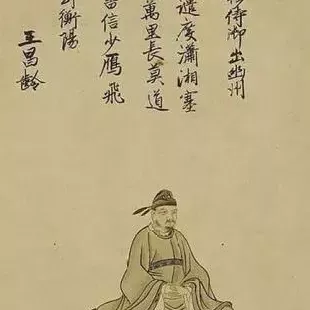 穆侍御出幽州
譴度瀟湘塞
萬里長莫道
書信少雁飛
到衡陽
王昌齡